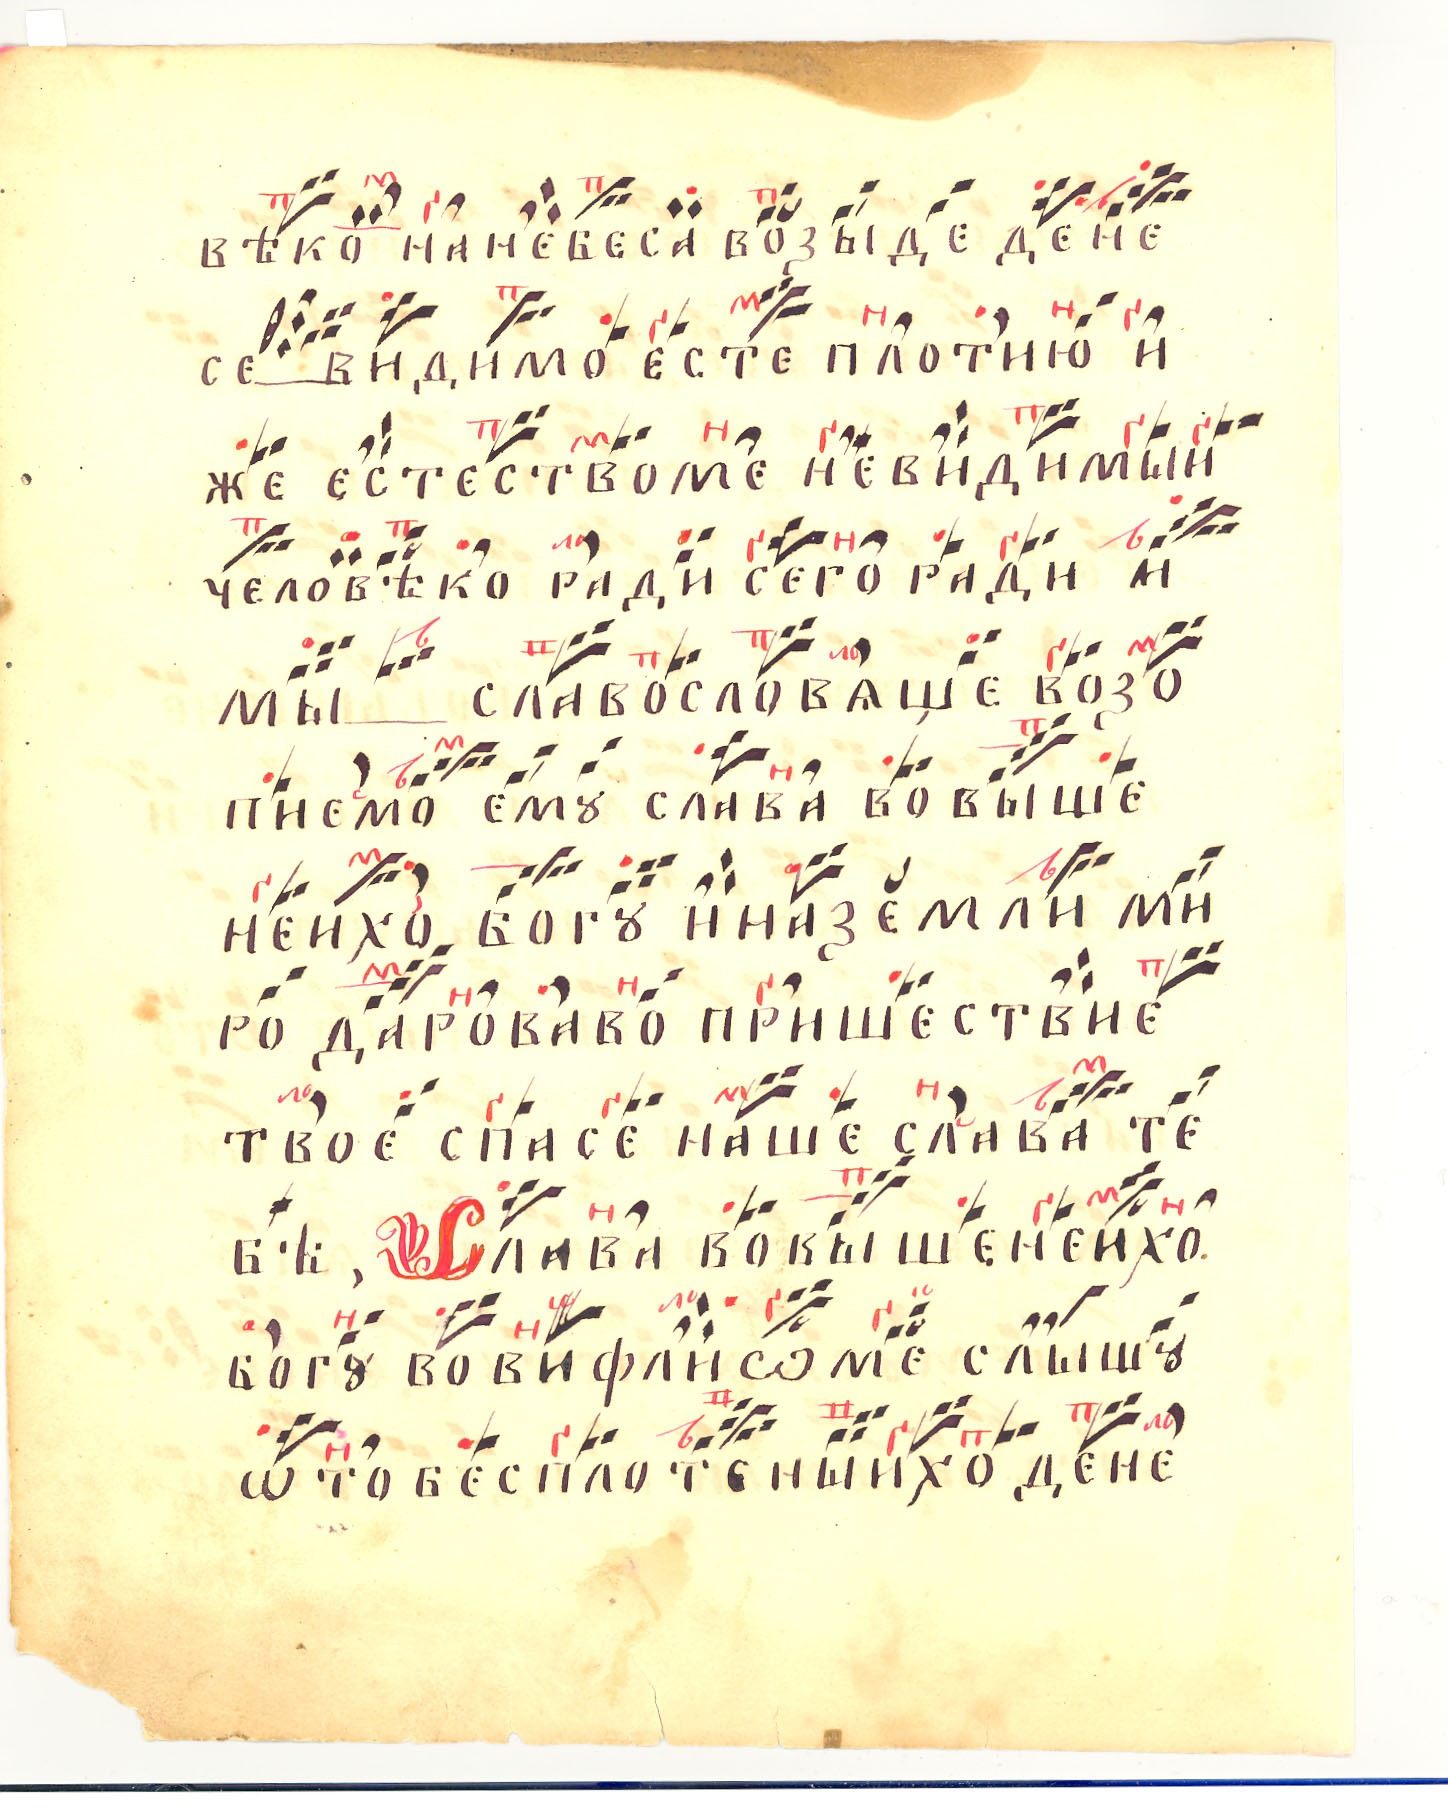 вѣко нанебеса возыде дене
се видимо есте плотию и
же естествоме невидимыи
человѣко ради сего ради и
мы славословѧще возо
пиемо емꙋ слава во выше
неихо богꙋ и на земли ми
ро дароваво пришествие
твое спасе наше слава те
бѣ, Слава во вышенеихо.
богꙋ во вифлиѡме слышꙋ
ѿто бесплотеныихо дене